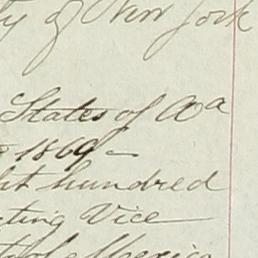 ty of New York
States of Aa
1869 –
ht hundred
cting Vice
of America